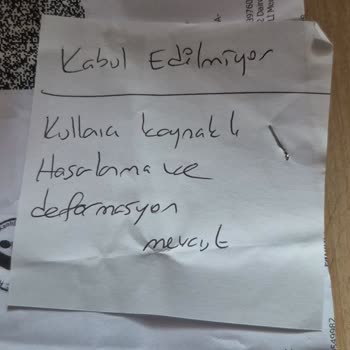 Kabul Edilmiyor
Kullanıcı kaynaklı
Hasarlanma ve
deformasyon
mevcut
549982